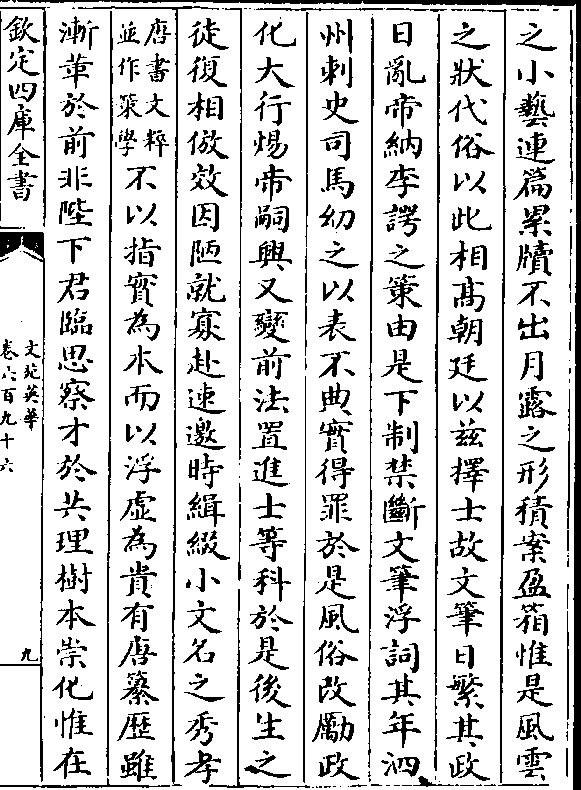 之小藝連篇累牘不出月露之形積案盈箱惟是風雲
之狀代俗以此相髙朝廷以茲擇士故文筆日繁其政
日亂帝納李諤之策由是下制禁斷文筆浮詞其年泗
州刺史司馬幼之以表不典實得罪於是風俗改勵政
化大行煬帝嗣興又變前法置進士等科於是後生之
徒復相倣效因陋就寡赴速邀時緝綴小文名之秀孝
唐書文粹
並作策學
不以指實為本而以浮虛為貴有唐纂歴雖
漸革於前非陛下君臨思察才於共理樹本崇化惟在
欽定四庫全書
文苑英華
卷六百九十六
九